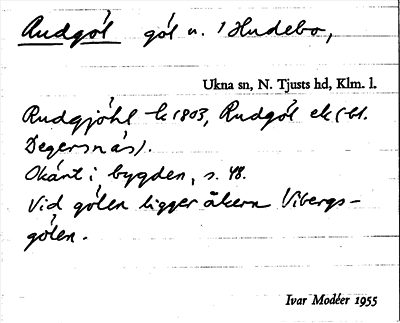 Rudgöl göl u. 1 Hudebo,
Ukna sn, N. Tjusts hd, Klm. l.
Rudgjöhl -k 1803, Rudgöl ek (-bl.
Degersnäs).
Okänt i bygden, s. 48.
Vid gölen ligger åkern Vibergs-
gölen.
Ivar Modéer 1955